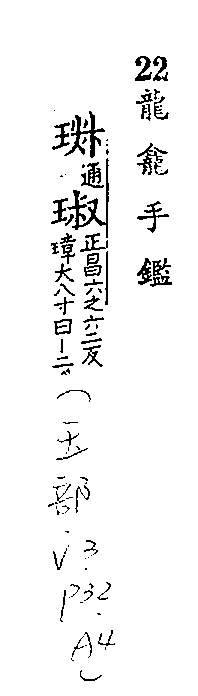 22龍龕手鑑
通
琡正昌六之六二反
璋大八寸曰一二
(玉部
v3.
P32.
A4)